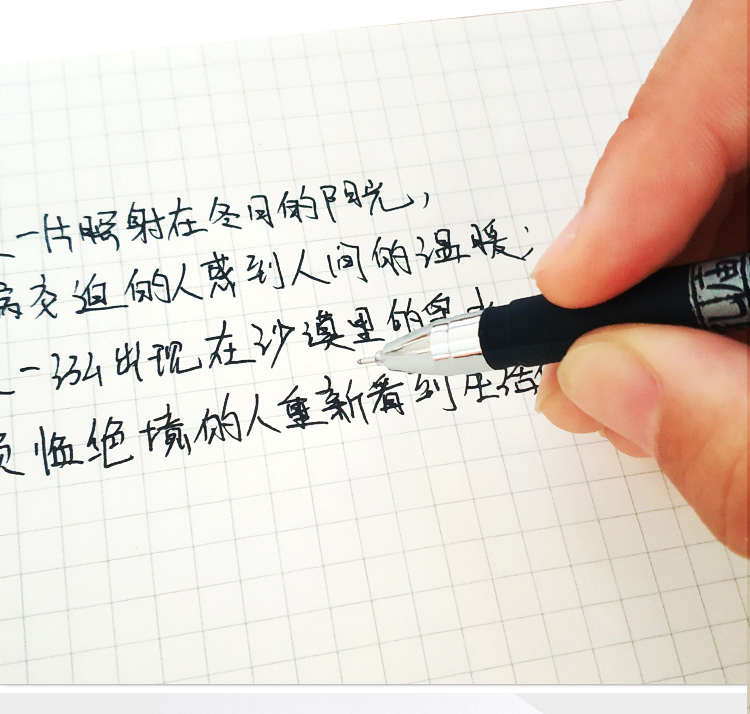 一片照射在冬日的阳光，
交迫的人感到人间的温暖；
一泓出现在沙漠里的泉水
临绝境的人重新看到生活